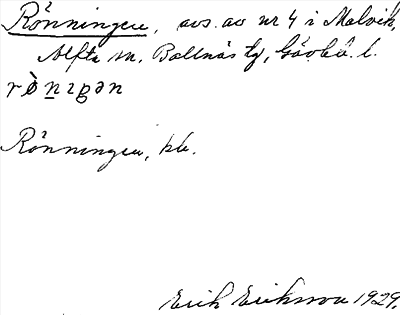 Rönningen, avs. av nr 4 i Malvik,
Alfta sn, Bollnäs tg, Gävleb. l.
Rönningen, hb.
Erik Eriksson 1929.